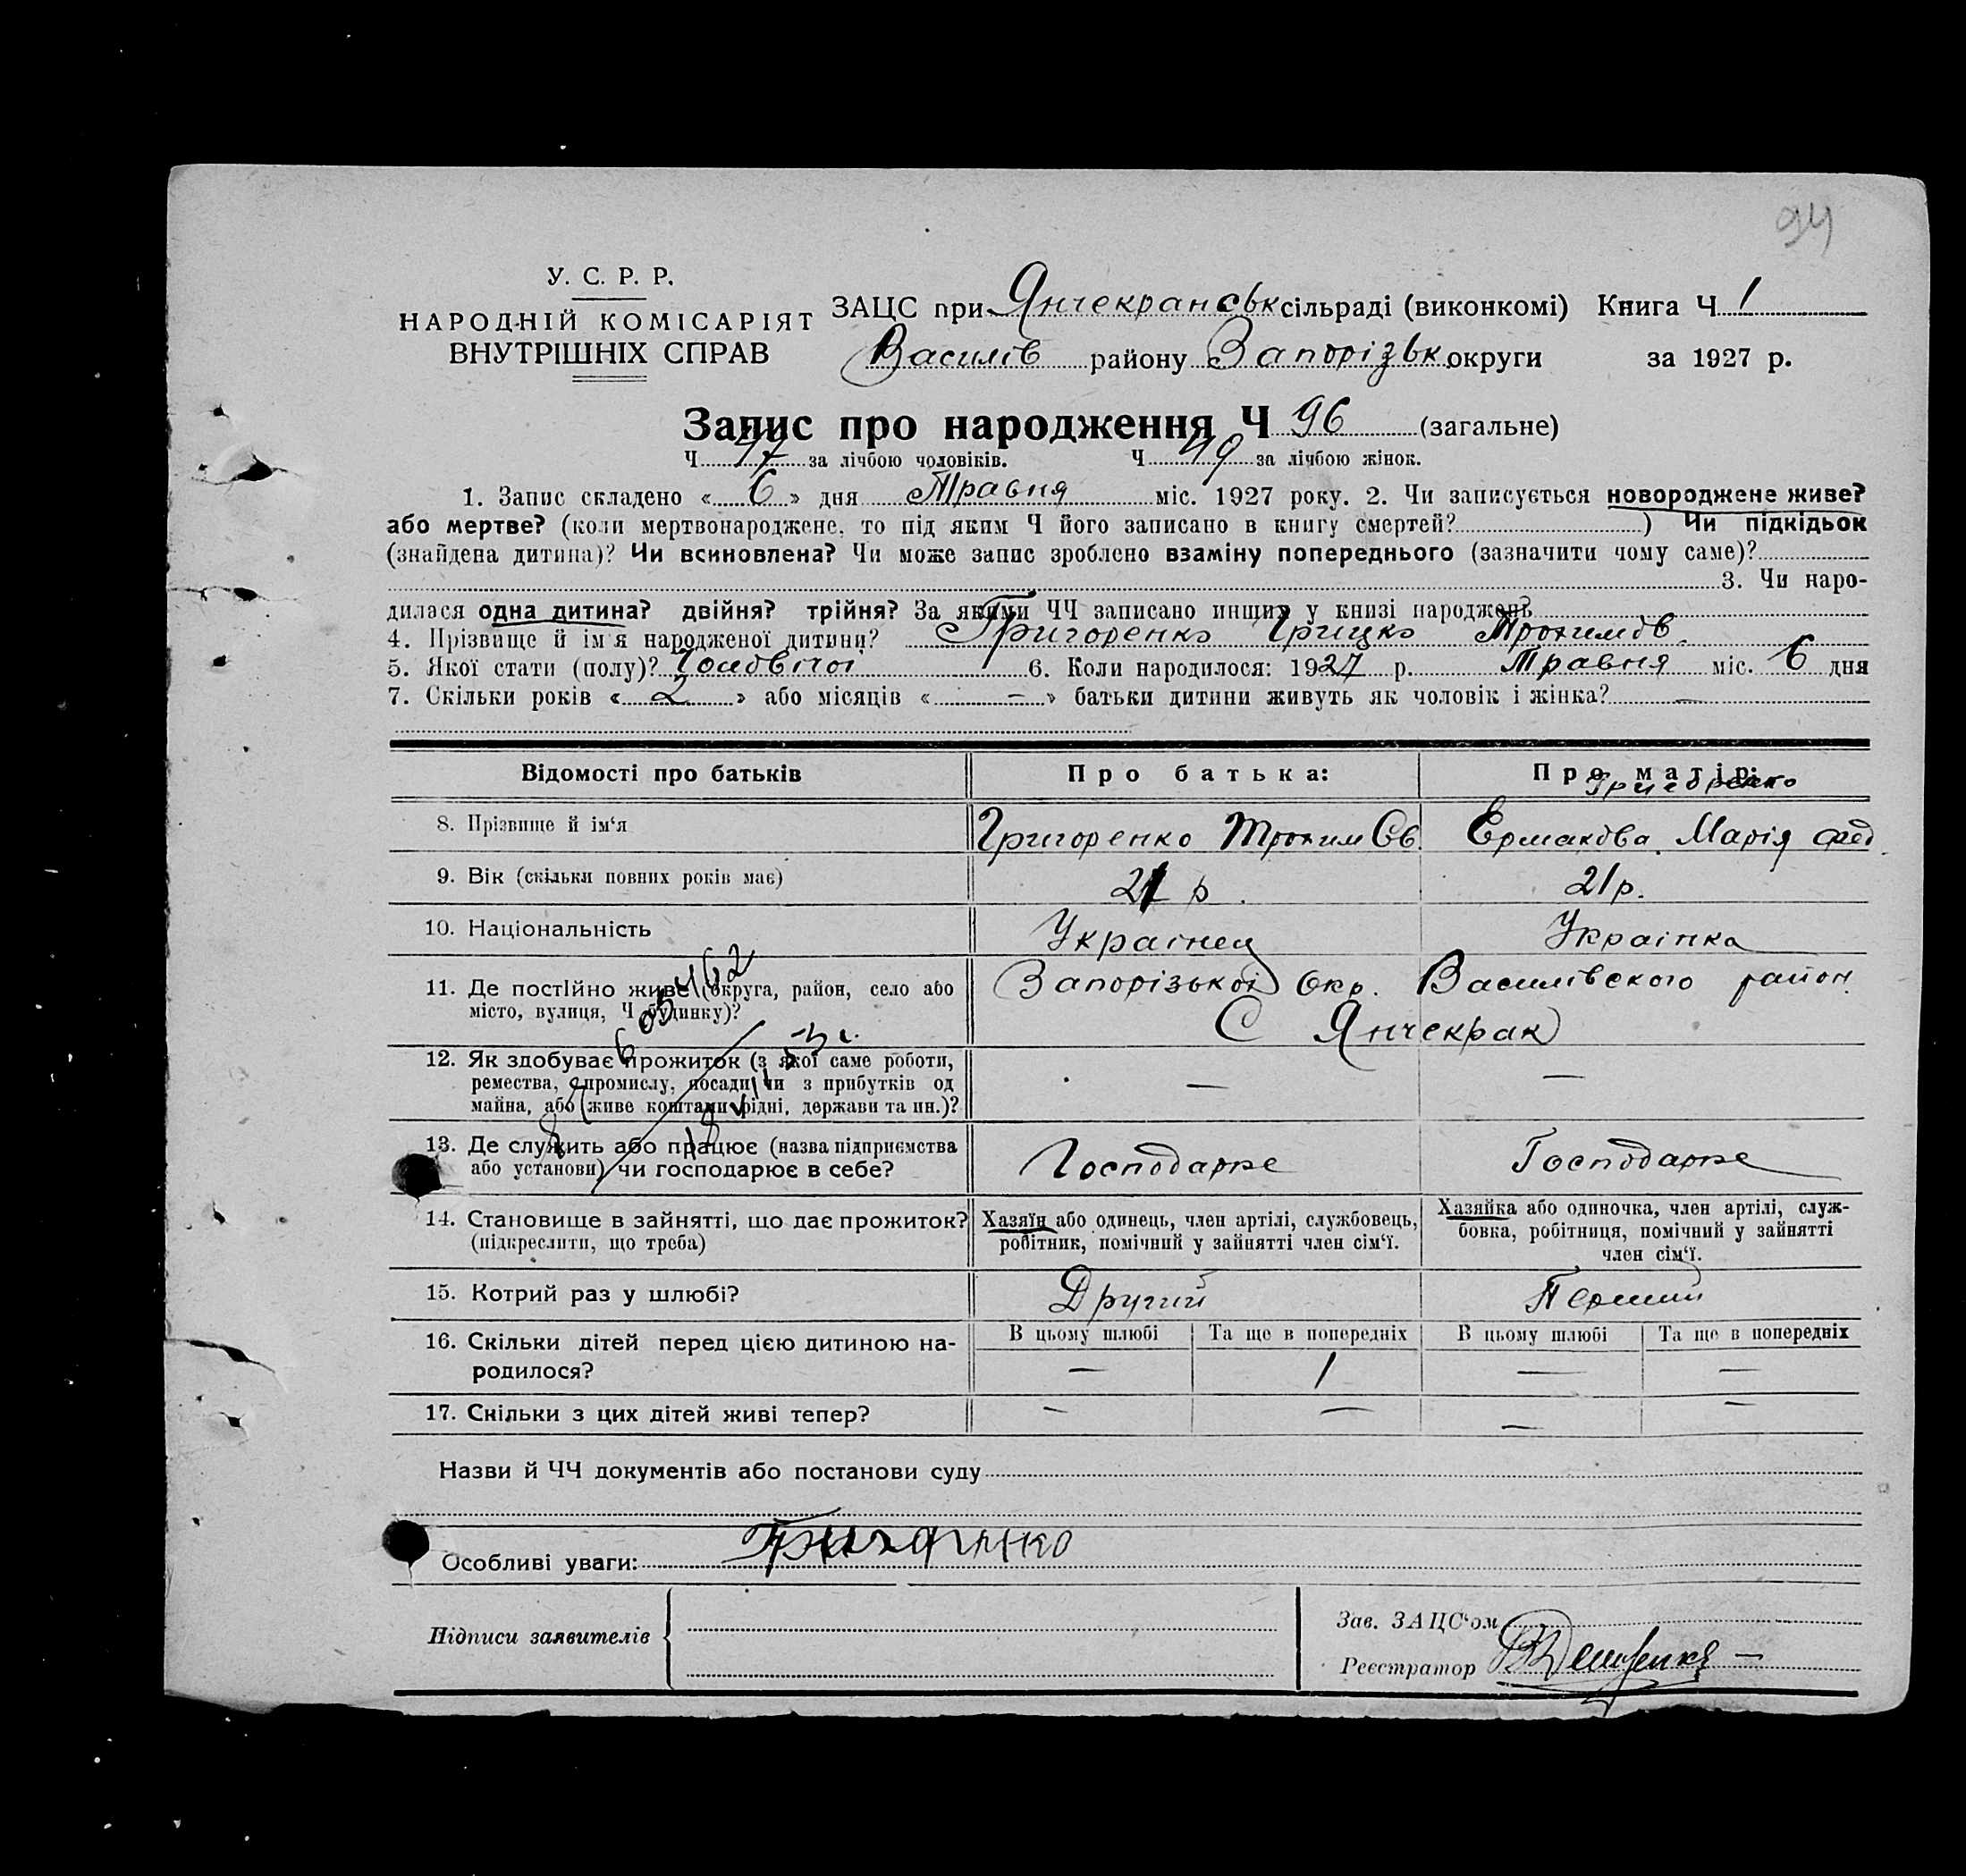 94
У. С. Р. Р.
НАРОДНІЙ КОМІСАРІЯТ
ВНУТРІШНІХ СПРАВ
ЗАЦС при Янчекранськ сільраді (виконкомі) Книга Ч 1
Василів району Запорізьк округи за 1927 р.
Запис про народження Ч 96 (загальне)
Ч 47 за лічбою чоловіків. Ч 49 за лічбою жінок.
1. Запис складено « 6 » дня Травня міс. 1927 року. 2. Чи записується новороджене живе?
або мертве? (коли мертвонароджене, то під яким Ч його записано в книгу смертей? ) Чи підкідьок
(знайдена дитина)? Чи всиновлена? Чи може запис зроблено взаміну попереднього (зазначити чому саме)?
3. Чи наро-
дилася одна дитина? двійня? трійня? За якими ЧЧ записано инших у книзі народжень
4. Прізвище й ім'я народженої дитини? Григоренко Грицко Трохимов.
5. Якої стати (полу)? 6. Коли народилося: 1927 р. Травня міс. 6 дня
7. Скільки років « 2 » або місяців « — » батьки дитини живуть як чоловік і жінка? —
Відомості про батьків Про батька: Про матір:
Григоренко
8. Прізвище й ім‘я Григоренко Трохим Ермакова Марія Фед.
9. Вік (скільки повних років має) 21 р. 21 р.
10. Національність Українец Українка
11. Де постійно живе (округа, район, село або Запорізької Окр. Василівского район.
місто, вулиця, Ч будинку)? С Янчекрак
12. Як здобуває прожиток (з якої саме роботи, — —
ремества, промислу, посади чи з прибутків од
майна, або живе коштами рідні, держави та ин.)?
13. Де служить або працює (назва підприємства
або установи) чи господарює в себе? Господарке Господарке
14. Становище в зайнятті, що дає прожиток? Хазяїн або одинець, член артілі, службовець, Хазяйка або одиночка, член артілі, служ-
(підкреслити, що треба) робітник, помічний у зайнятті член сім‘ї. бовка, робітниця, помічний у зайнятті
член сім‘ї.
15. Котрий раз у шлюбі? Другий Перший
16. Скільки дітей перед цією дитиною на- В цьому шлюбі Та ще в попередніх В цьому шлюбі Та ще в попередніх
родилося? — 1 — —
17. Скільки з цих дітей живі тепер? — — — —
Назви й ЧЧ документів або постанови суду
Особливі уваги:
Підписи заявителів
Зав. ЗАЦС‘ом
Реєстратор